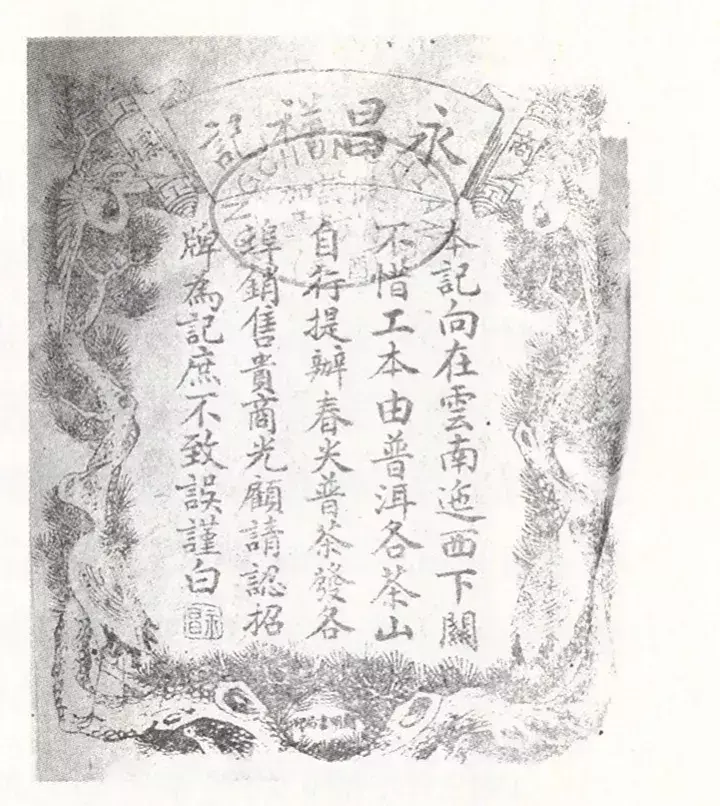 永昌祥記
商
標
本記向在雲南迤西下關
不惜工本由普洱各茶山
自行提辦春尖普茶發各
埠銷售貴商光顧請認招
牌為記庶不致誤謹白